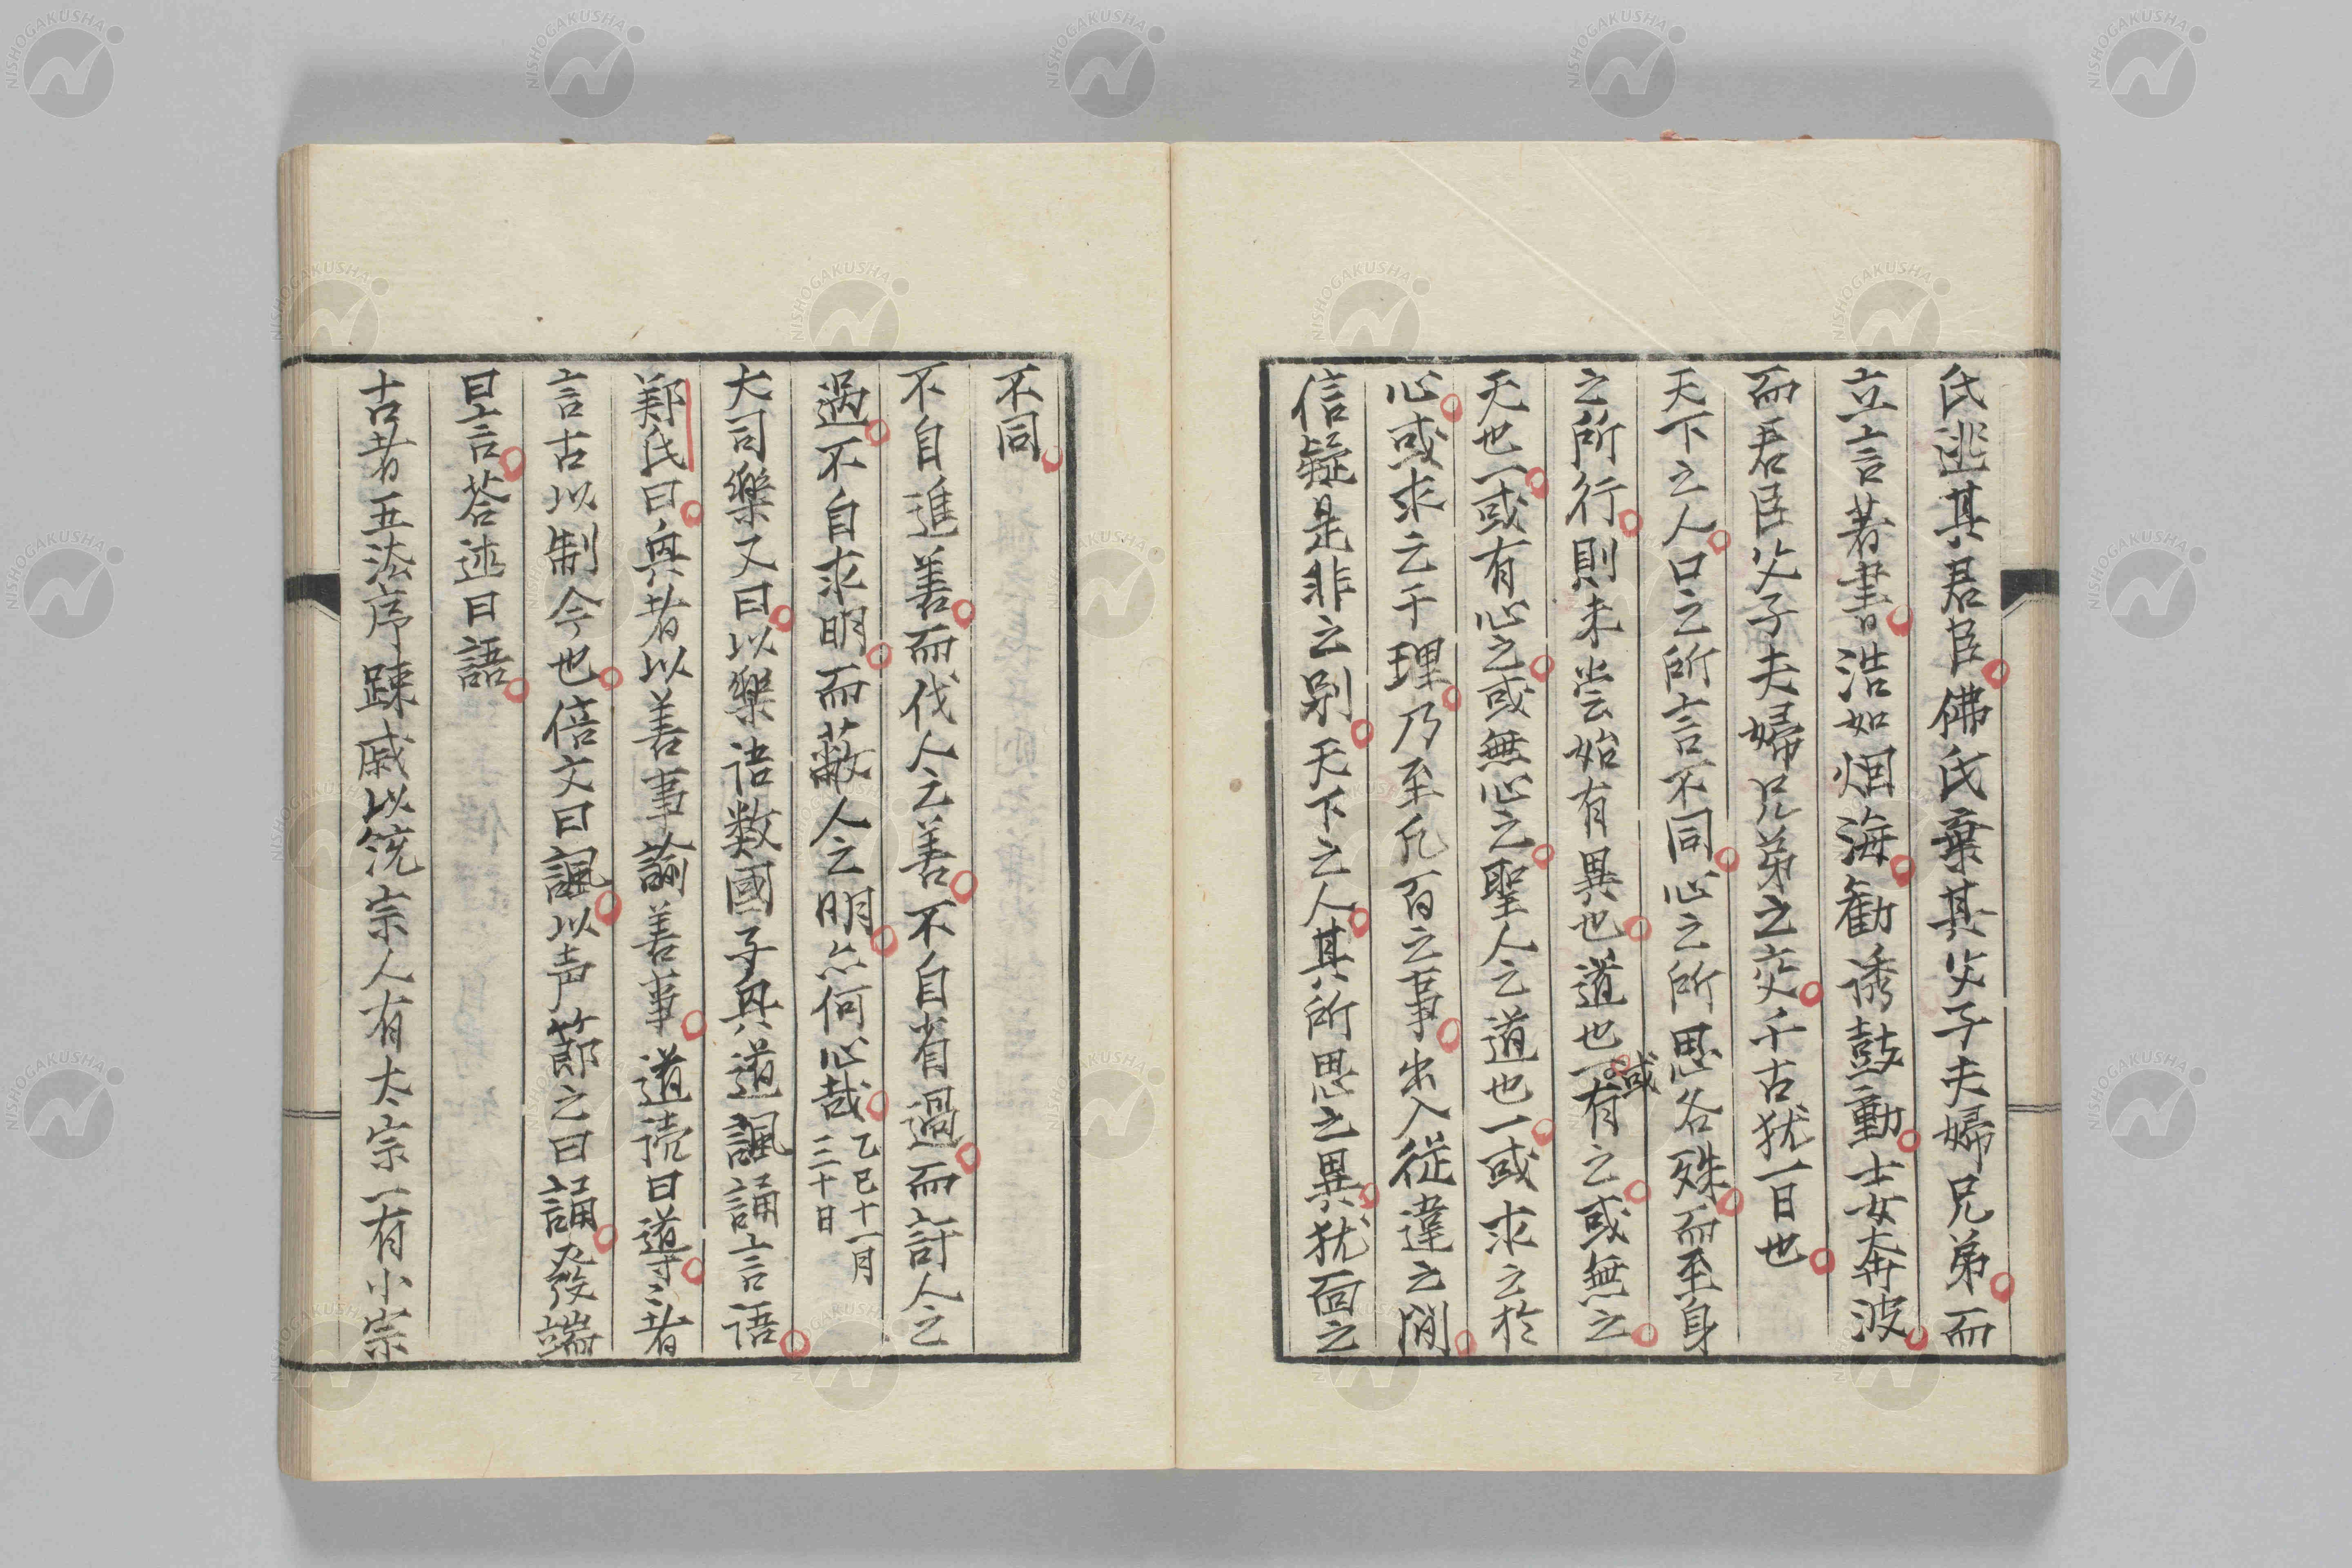 氏逃其君臣佛氏棄其父子夫婦兄弟而
立言著書浩如烟海勧誘鼓動士女奔波
而君臣父子夫婦兄弟之交千古犹一日也
天下之人口之所言不同心之所思各殊而至身
之所行則未尝始有異也道也一或有之或無之
天也一或有心之或無心之聖人之道也一或求之於
心或求之于理乃至凡百之事出入従違之間
信疑是非之別天下之人其所思之異犹面之
不同
不自進善而伐人之善不自省過而訐人之
過不自求明而蔽人之明亦何心哉乙巳十一月
三十日
大司樂又曰以樂语数國子興道諷誦言语
鄭氏曰興者以善事諭善事道读曰導〻者
言古以制今也倍文曰諷以声節之曰誦發端
曰言荅述曰語
古者五法序踈戚以統宗人有大宗一有小宗
NISHOGAKUSHA